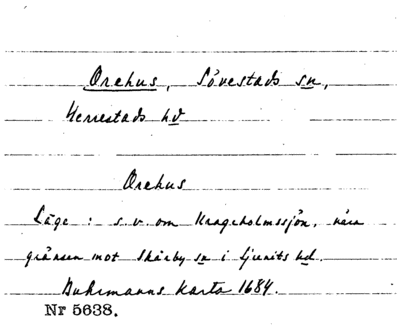 Orehus, Sövestads sn,
Herrestads hd
Orehus
Läge : s.v. om Krageholmssjön, nära
gränsen mot Skårby sn i Ljunits hd.
Buhrmanns karta 1684.
Nr 5638.